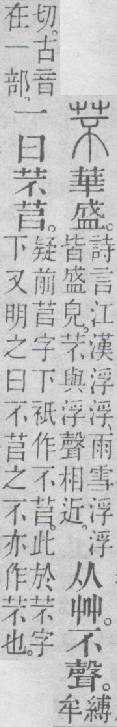 芣華盛。詩言江漢浮浮。雨雪浮浮皆盛皃。芣與浮聲相近。从艸。不聲。縛牟
切。古音在一部。一曰芣苢。疑前苢字下祇作不苢。此於芣字下又明之曰不苢之不亦作芣也。